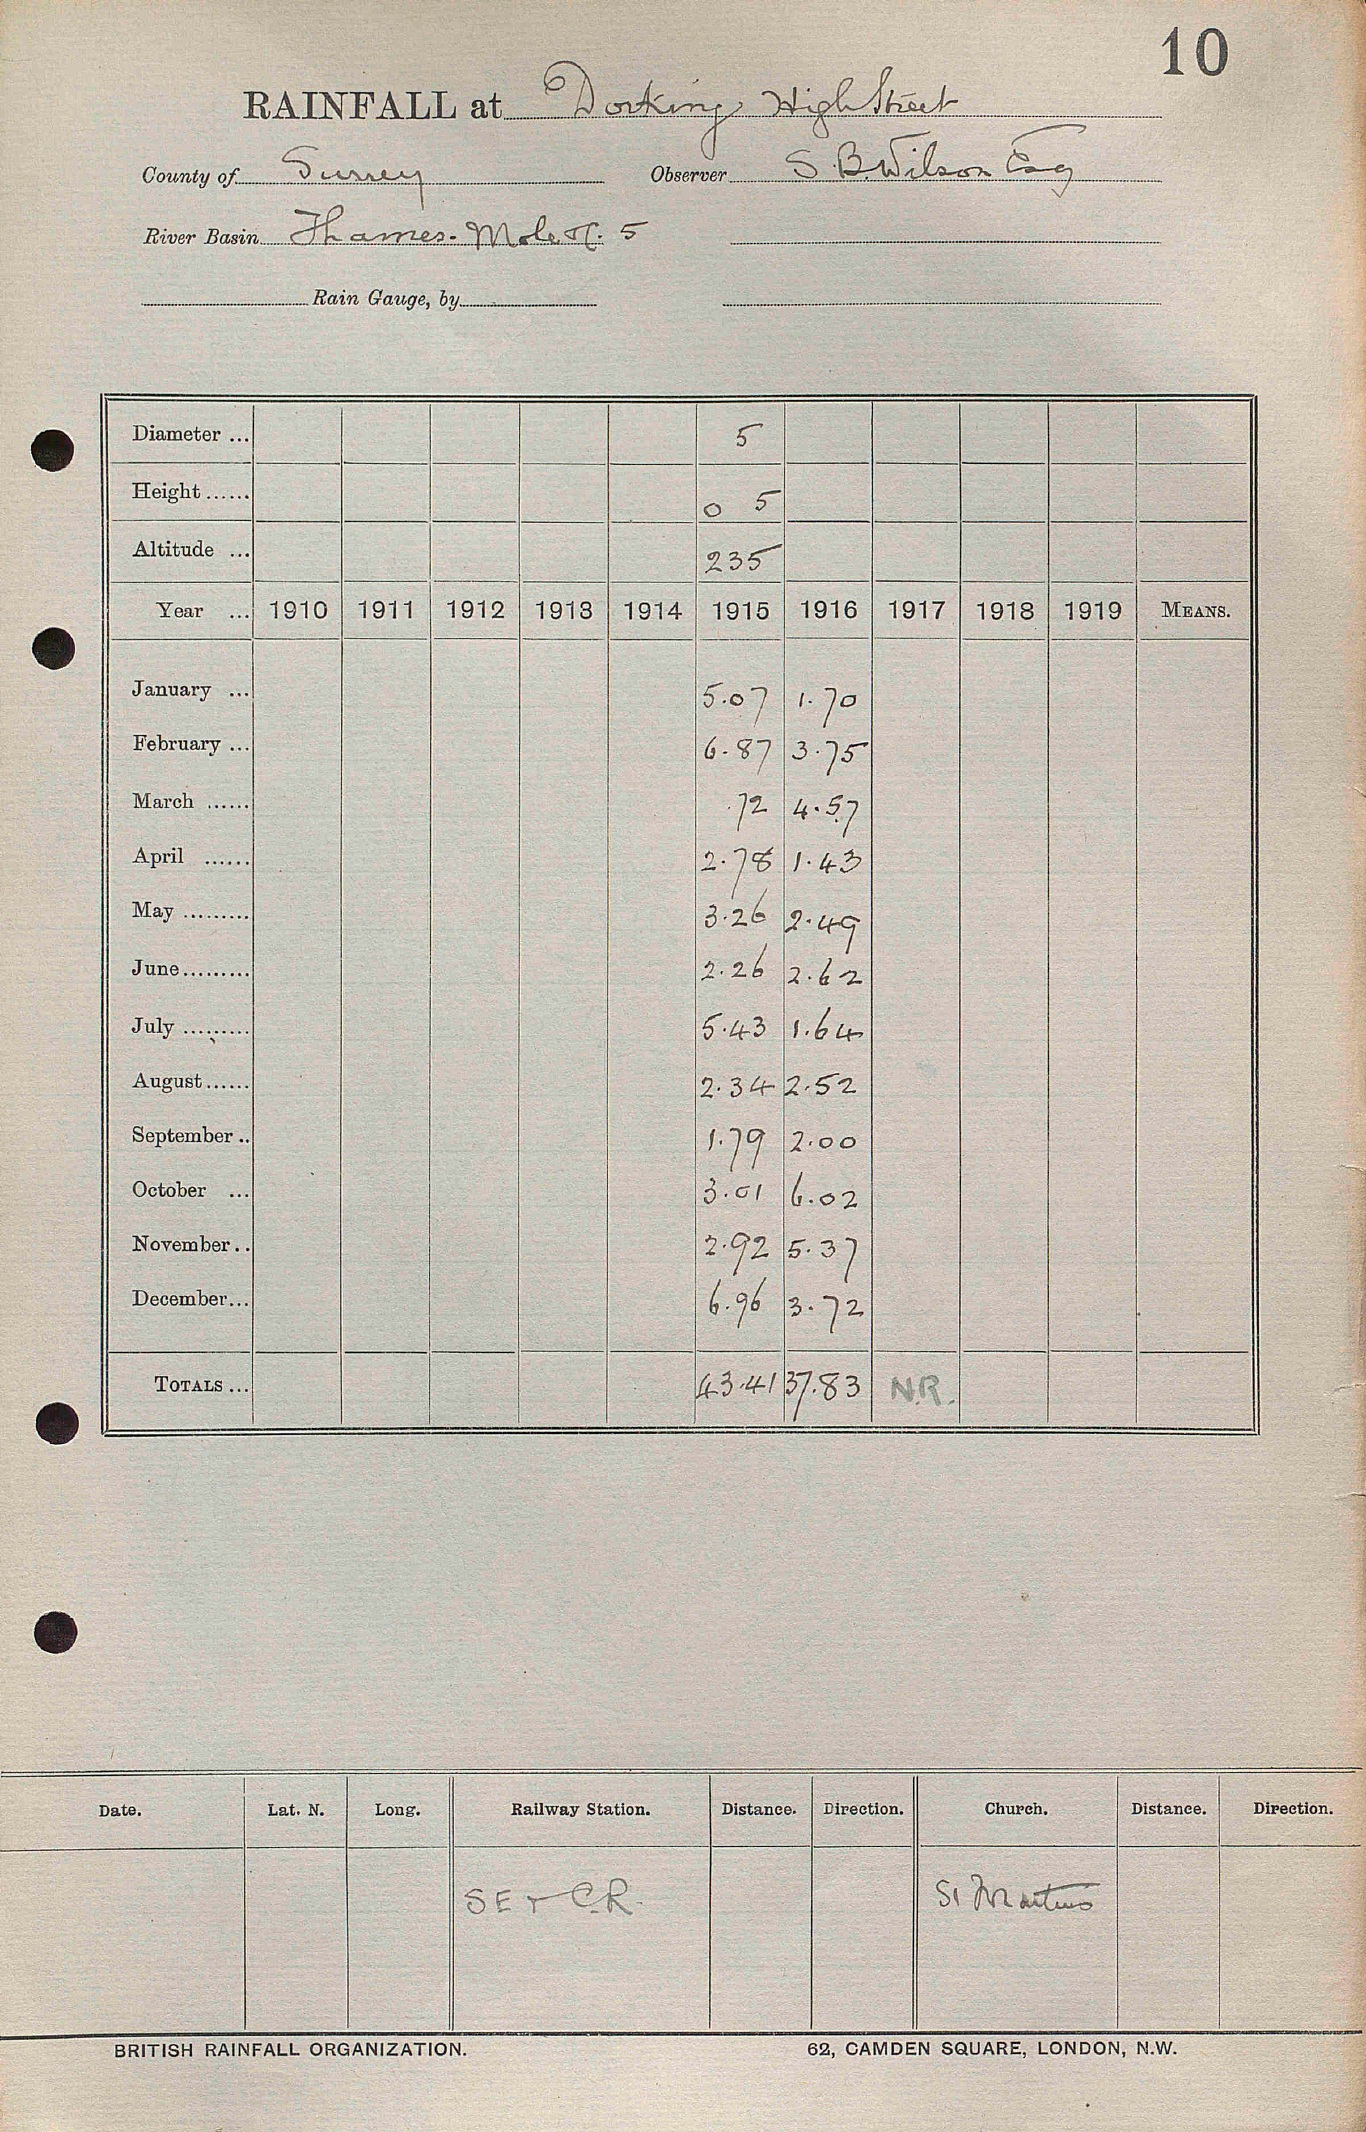 10
RAINFALL at Dorking High Street
County of Surrey Observer S. B. Wilson Esq
River Basin Thames. Mole 5
Rain Gauge, by
Diameter ... 5
Height ...... 0 5
Altitude ... 235
Year ... 1910 1911 1912 1913 1914 1915 1916 1917 1918 1919 MEANS.
January ... 5.07 1.70
February ... 6.87 3.75
March ...... .72 4.57
April ...... 2.78 1.43
May ......... 3.26 2.49
June ......... 2.26 2.62
July ......... 5.43 1.64
August ...... 2.34 2.52
September .. 1.79 2.00
October ... 3.01 6.02
November .. 2.92 5.37
December ... 6.96 3.72
TOTALS ... 43.41 37.83 N.R.
Date. Lat. N. Long. Railway Station. Distance. Direction. Church. Distance. Direction.
S E + C.R. St Martins
BRITISH RAINFALL ORGANIZATION. 62, CAMDEN SQUARE, LONDON, N.W.